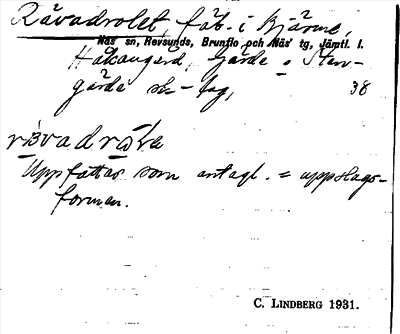 Rävadrolet, fäb. i Bjärme,
Näs sn, Revsunds, Brunflo och Näs tg, Jämtl. l.
Håkansgård, Gärde o Sten-
gärde sk-lag, 38
Uppfattas som antagl. = uppslags-
formen.
C. LINDBERG 1931.